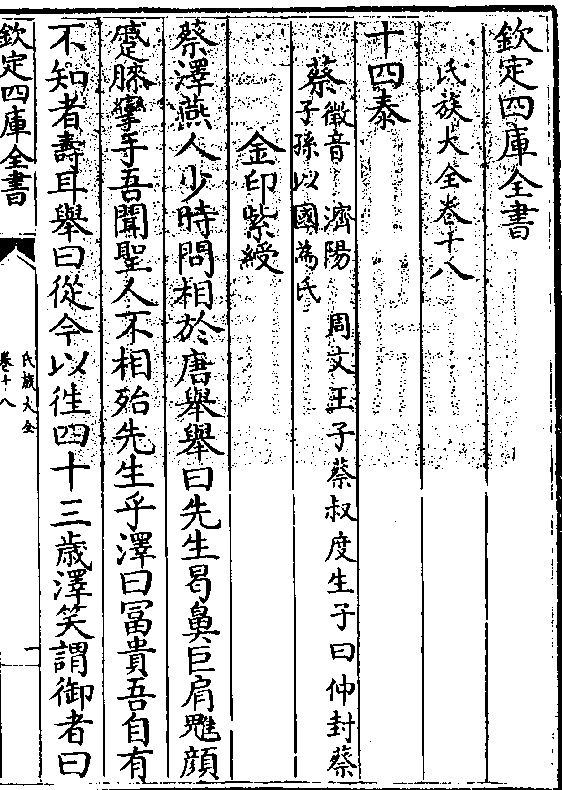 欽定四庫全書
氏族大全卷十八
十四泰
蔡徵音 濟陽 周文王子蔡叔度生子曰仲封蔡
子孫以國為氏
金印紫綬
蔡澤燕人少時問相於唐舉舉曰先生曷鼻巨肩魋顔
蹙膝攣手吾聞聖人不相殆先生乎澤曰冨貴吾自有
不知者壽耳舉曰從今以往四十三歳澤笑謂御者曰
欽定四庫全書
氏族大全
卷十八
一